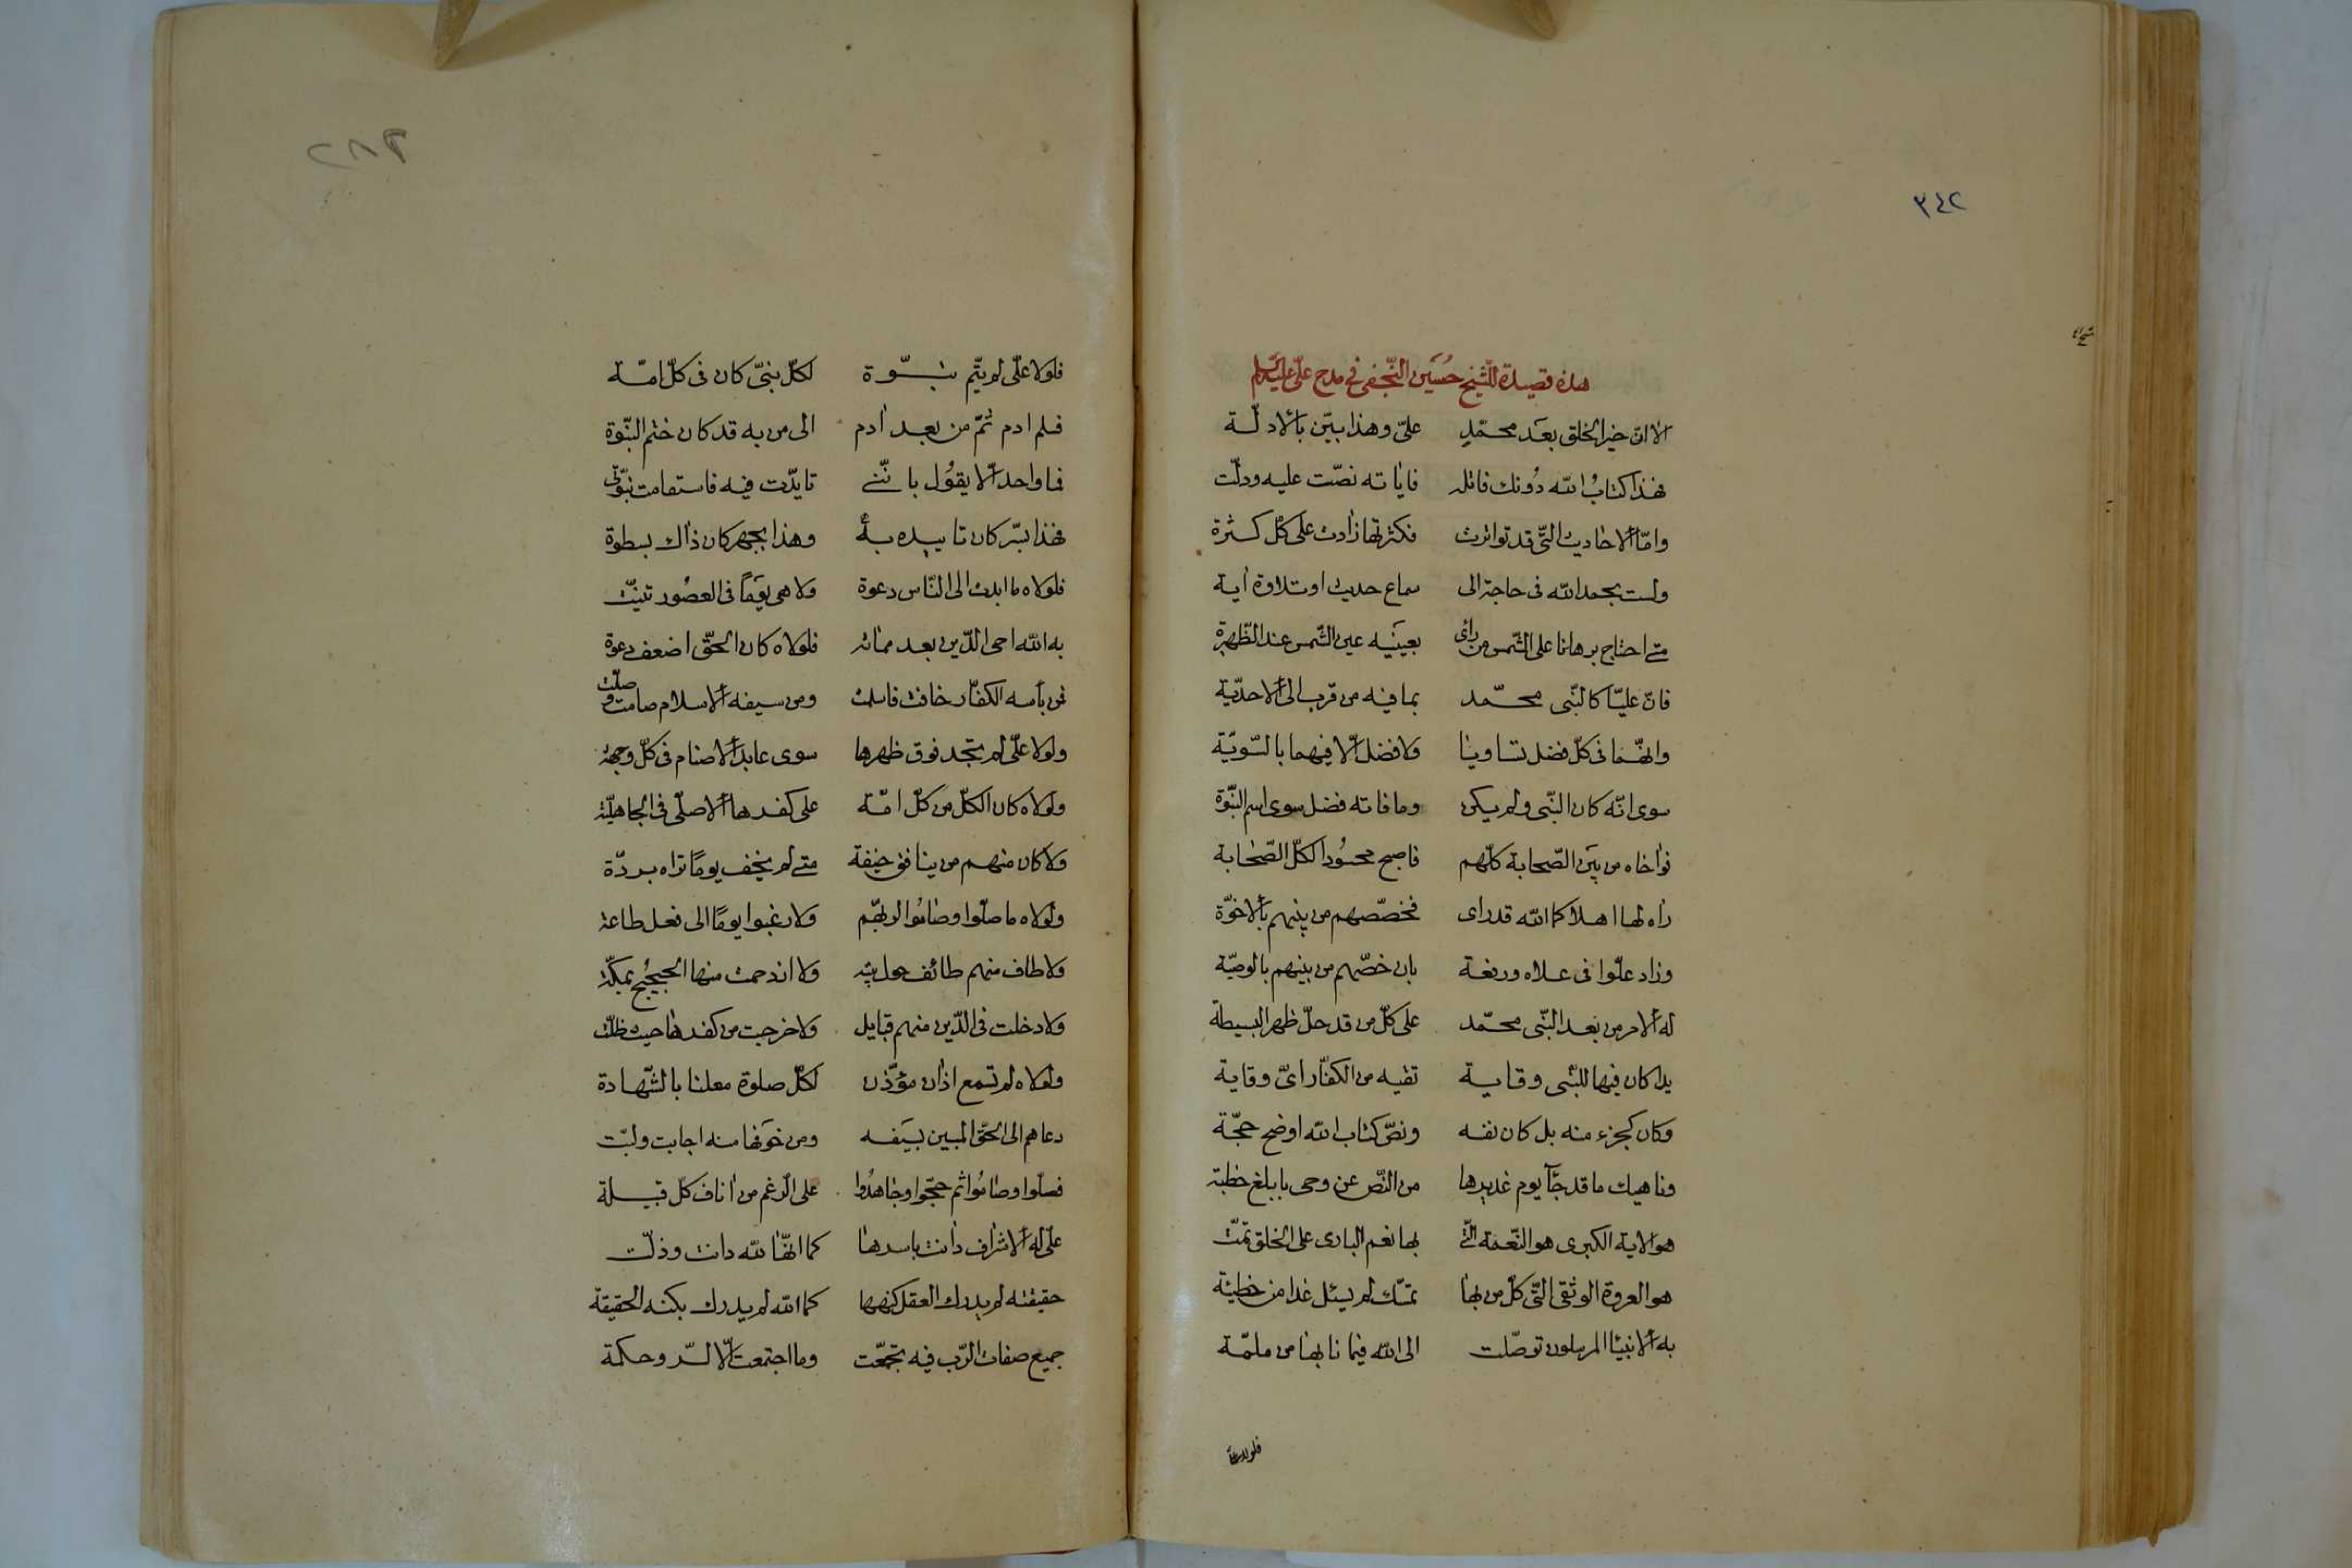 ٣٤٢
هذه قصيدة للشيخ حُسَين النّجفى فى مدح علىّ عليه السّلام
الا انّ خير الخلق بعَد محمّدٍ علىّ وهذا بيّن بالأدلّة
فهذا كتابُ الله دُونك فاتله فاياته نصّت عليه ودلّت
وامّا الأحاديث التّى قد تواترت فكثرتها زادت على كل كثرة
ولست بحمد الله فى حاجة الى سماع حديث او تلاوة اية
متى احتاج برهانا على الشّمس من رأى بعينَيه عين الشّمس عند الظّهيرة
فانّ عليّا كالنّبى محمّد بما فيه من قرب الى الأحديّة
وانّهما فى كلّ فضل تساويا ولا فضل الّا فيهما بالسّويّة
سوى انّه كان النّبى ولم يكن وما فاته فضل سوى اسم النّبوّة
فواخاه من بَين الصّحابة كلّهم فاصبح محسُودا لكلّ الصّحابة
راه لها اهلا كما الله قد راى فخصّصهم من بينهم بالأخوّة
وزاد علّوا فى علاه ورفعة بان خصّهم من بينهم بالوصيّة
له الأمر من بعد النّبى محمّد على كلّ من قد حلّ ظهر البسيطة
يدا كان فيها للنّبى وقاية تقيه من الكفّار اىّ وقاية
وكان كجزء منه بل كان نفسه ونصّ كتاب الله اوضح حجّة
وناهيك ما قد جآء يوم غديرها من النّص عن وحى بابلغ خطبة
هو الاية الكبرى هو النّعمة التّى بها نعم البارى على الخلق تمّت
هو العروة الوثقى التّى كلّ من بها تمسّك لم يسئل غدا من خطيئة
به الأنبيا المرسلون توصّلت الى الله فيما نابها من ملمّة
فلولا علىّ
٢٨٢
فلولا علّى لم يتّم نبوّة لكلّ نبىّ كان فى كلّ امّة
فلم ادم ثمّ من بعد ادم الى من به قد كان ختم النّبوّة
فما واحد الّا يقوُل بانّنى تايدّت فيه فاستقامت نبوّتى
فهذا بسّر كان تاييده به وهذا بجهر كان ذاك بسطوة
فلولاه ما ابدت الى النّاس دعوة ولا هى يوَمًا فى العصُور تبنّت
به الله احى الدّين بعد مماته فلولاه كان الحقّ اضعف دعوة
فمن بأسه الكفّار خافت فاسلمت ومن سيفه الأسلام صامت وصلّت
ولولا علّى لم تجد فوق ظهرها سوى عابد الأصنام فى كلّ وجهة
ولولاه كان الكلّ من كلّ امّة على كفرها الأصلّى فى الجاهليّة
ولا كان منهم من ينافق خيفة متى لم يخف يومًا تراه بردّة
ولولاه ما صلّوا وصامُوا لربّهم ولا رغبوا يومًا الى فعل طاعة
ولا طاف منهم طائف حول بيته ولا ازدحمت منها الحجيُج بمكّة
ولا دخلت فى الدّين منهم قبايل ولا خرجت من كفرها حيث ظلّت
ولولاه لم تسمع اذان مؤذّن لكلّ صلوة معلنا بالشّهادة
دعاهم الى الحقّ المبين بسَيفه ومن خوَفها منه اجابت ولبّت
فصلّوا وصامُوا ثم حجّوا وجاهدُوا على الرّغم من اناف كلّ قبيلة
علّى له الأشراف دانت باسرها كما انّها لله دانت وذلّت
حقيقته لم يدرك العقل كنهها كما الله لم يدرك بكنه الحقيقة
جميع صفات الرّب فيه تجمّعت وما اجتمعت الّا لسّر وحكمة